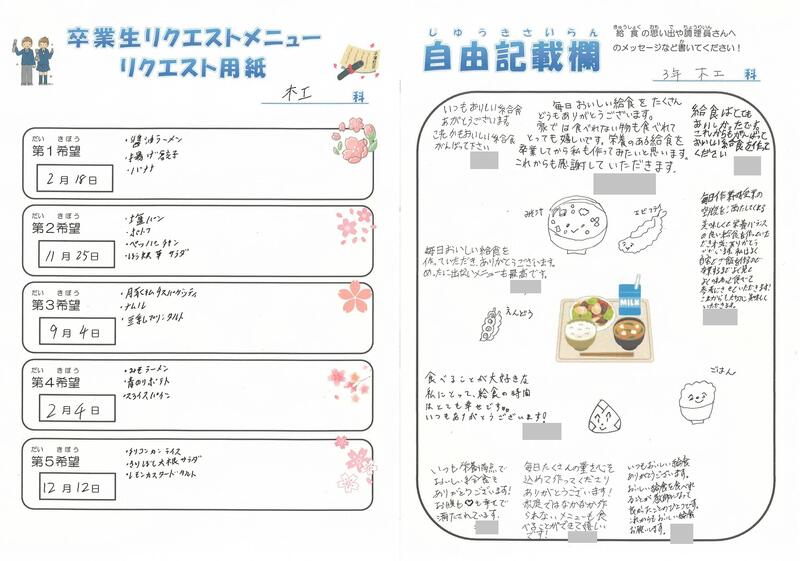 卒業生リクエストメニュー
リクエスト用紙
木工 科
だい きぼう
第1希望
2月18日
・醤油ラーメン
・揚げ餃子
・バナナ
だい きぼう
第2希望
11月25日
・塩パン
・ポトフ
・ペッパーチキン
・ほうれん草サラダ
だい きぼう
第3希望
9月4日
・ナムル
だい きぼう
第4希望
2月4日
・みそラーメン
・青のりポテト
・スライスパイン
だい きぼう
第5希望
12月12日
・チリコンカンライス
・きりぼし大根サラダ
・レモンカスタードタルト
じゆうきさいらん
自由記載欄
きゅうしょく おも で ちょうりいん
給食の思い出や調理員さんへ
のメッセージなど書いてください!
3年 木工 科
いつもおいしい給食
ありがとうございます。
これからもおいしい給食
がんばって下さい
毎日おいしい給食をたくさん
どうもありがとうございます。
家では食べれない物も食べれて
とっても嬉しいです。栄養のある給食を
卒業してから私も作ってみたいと思います。
これからも感謝していただきます。
給食はとても
おいしかったです。
これからもがんばって
おいしい給食を作って
ください
みそ汁
エビフライ
毎日おいしい給食を
作っていただき、ありがとうございます。
めったに出ないメニューも最高です。
MILK
えんどう
ごはん
食べることが大好きな
私にとって、給食の時間
はとても幸せです。
いつもありがとうございます!
いつも栄養満点で
おいしい給食を
ありがとうございます!
お腹も♥も幸せで
満たされています。
毎日たくさんの量を心を
込めて作ってくださり
ありがとうございます!
家庭ではなかなか作
られないメニューも食べ
ることができて嬉しい
です!
いつもおいしい給食
ありがとうございます。
おいしい給食を食べれ
ることが
これからもおいしい給食
お願いします。